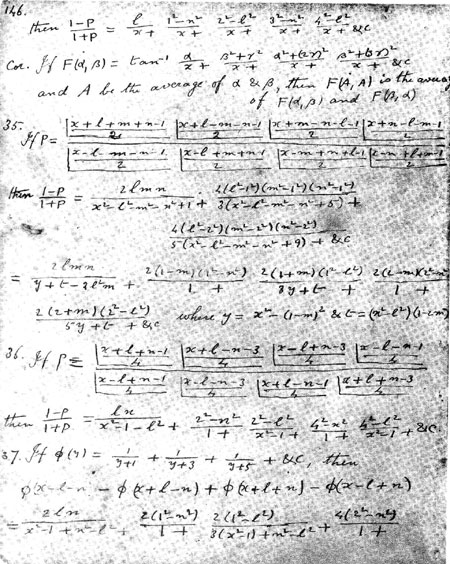 146.
then (1-P)/(1+P) = l/x+ (1²-n²)/x+ (2²-l²)/x+ (3²-n²)/x+ (4²-l²)/x+ &c
Cor. If F(α,β) = tan⁻¹ α/x+ (β²+γ²)/x+ (α²+(2γ)²)/x+ (β²+(3γ)²)/x+ &c
and A be the average of α & β, then F(A,A) is the average
of F(α,β) and F(β,α)
35. If P = |(x+l+m+n-1)/2 |(x+l-m-n-1)/2 |(x+m-n-l-1)/2 |(x+n-l-m-1)/2
|(x-l-m-n-1)/2 |(x-l+m+n-1)/2 |(x-m+n+l-1)/2 |(x-n+l+m-1)/2
then (1-P)/(1+P) = 2lmn/(x²-l²-m²-n²+1)+ 4(l²-1²)(m²-1²)(n²-1²)/3(x²-l²-m²-n²+5)+
4(l²-2²)(m²-2²)(n²-2²)/5(x²-l²-m²-n²+9)+ &c
= 2lmn/(y+t-2l²m)+ 2(1-m)(1²-n²)/1+ 2(1+m)(1²-l²)/(3y+t)+ 2(2-m)(2²-n²)/1+
2(2+m)(2²-l²)/(5y+t)+ &c where y = x²-(1-m)² & t = (n²-l²)(1-2m)
36. If P = |(x+l+n-1)/4 |(x+l-n-3)/4 |(x-l+n-3)/4 |(x-l-n-1)/4
|(x-l+n-1)/4 |(x-l-n-3)/4 |(x+l-n-1)/4 |(x+l+n-3)/4
then (1-P)/(1+P) = ln/(x²-1-l²)+ (2²-n²)/1+ (2²-l²)/(x²-1)+ (4²-n²)/1+ (4²-l²)/(x²-1)+ &c.
37. If φ(y) = 1/(y+1) + 1/(y+3) + 1/(y+5) + &c, then
φ(x-l-n) - φ(x+l-n) + φ(x+l+n) - φ(x-l+n)
= 2ln/(x²-1+n²-l²)+ 2(1²-n²)/1+ 2(1²-l²)/(3(x²-1)+n²-l²)+ 4(2²-n²)/1+